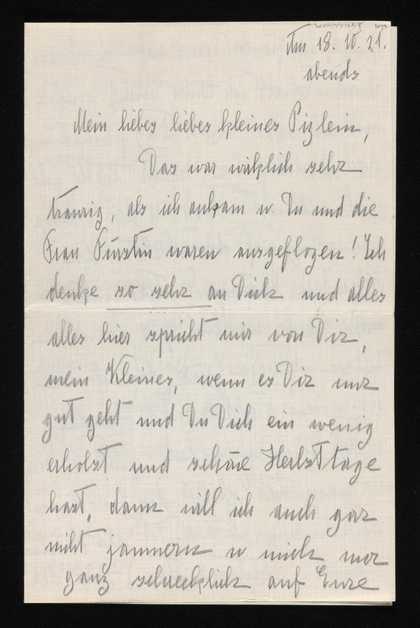 Am 18. 10. 21.
abends
Mein liebes liebes kleines Pizlein,
Das war wirklich sehr
traurig, als ich ankam u Du und die
Frau Fürstin waren ausgeflogen! Ich
denke so sehr an Dich und alles
alles hier spricht mir von Dir,
mein Kleines, wenn es Dir nur
gut geht und Du Dich ein wenig
erholst und schöne Herbsttage
hast, dann will ich auch gar
nicht jammern u mich nur
ganz schrecklich auf Eure